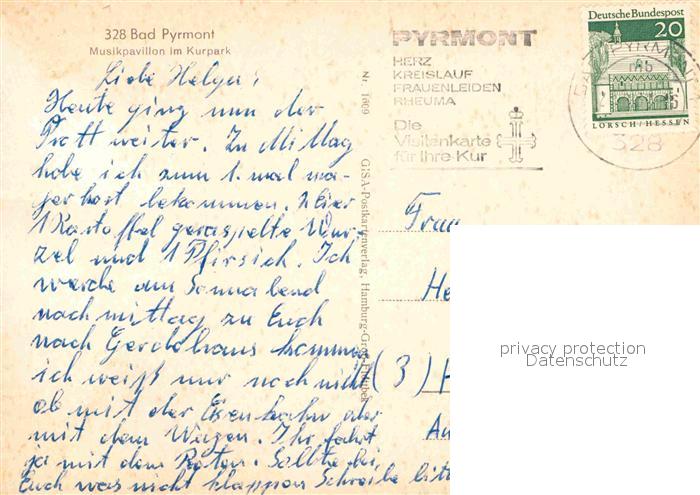 328 Bad Pyrmont
Musikpavillon im Kurpark
Liebe Helga!
Heute ging nun der
Trott weiter. Zu Mittag
habe ich zum 1. mal ma-
gerkost bekommen. 2 Eier
1 Kartoffel geraspelte Wur-
zel und 1 Pfirsich. Ich
werde am Sonnabend
nachmittag zu Euch
nach Gerdshaus kommen
ich weiß nur noch nicht
ob mit der Eisenbahn oder
mit dem Wagen. Ihr fahrt
ja mit dem Roten. Sollte bei
Euch was nicht klappen Schreibe bitte
Nr. 1609
GISA-Postkartenverlag, Hamburg-Groß
PYRMONT
HERZ
KREISLAUF
FRAUENLEIDEN
RHEUMA
Die
Visitenkarte
für Ihre Kur
Deutsche Bundespost
20
LORSCH/HESSEN
PYRM
mb
328
Frau
He
(3)
privacy protection
Datenschutz